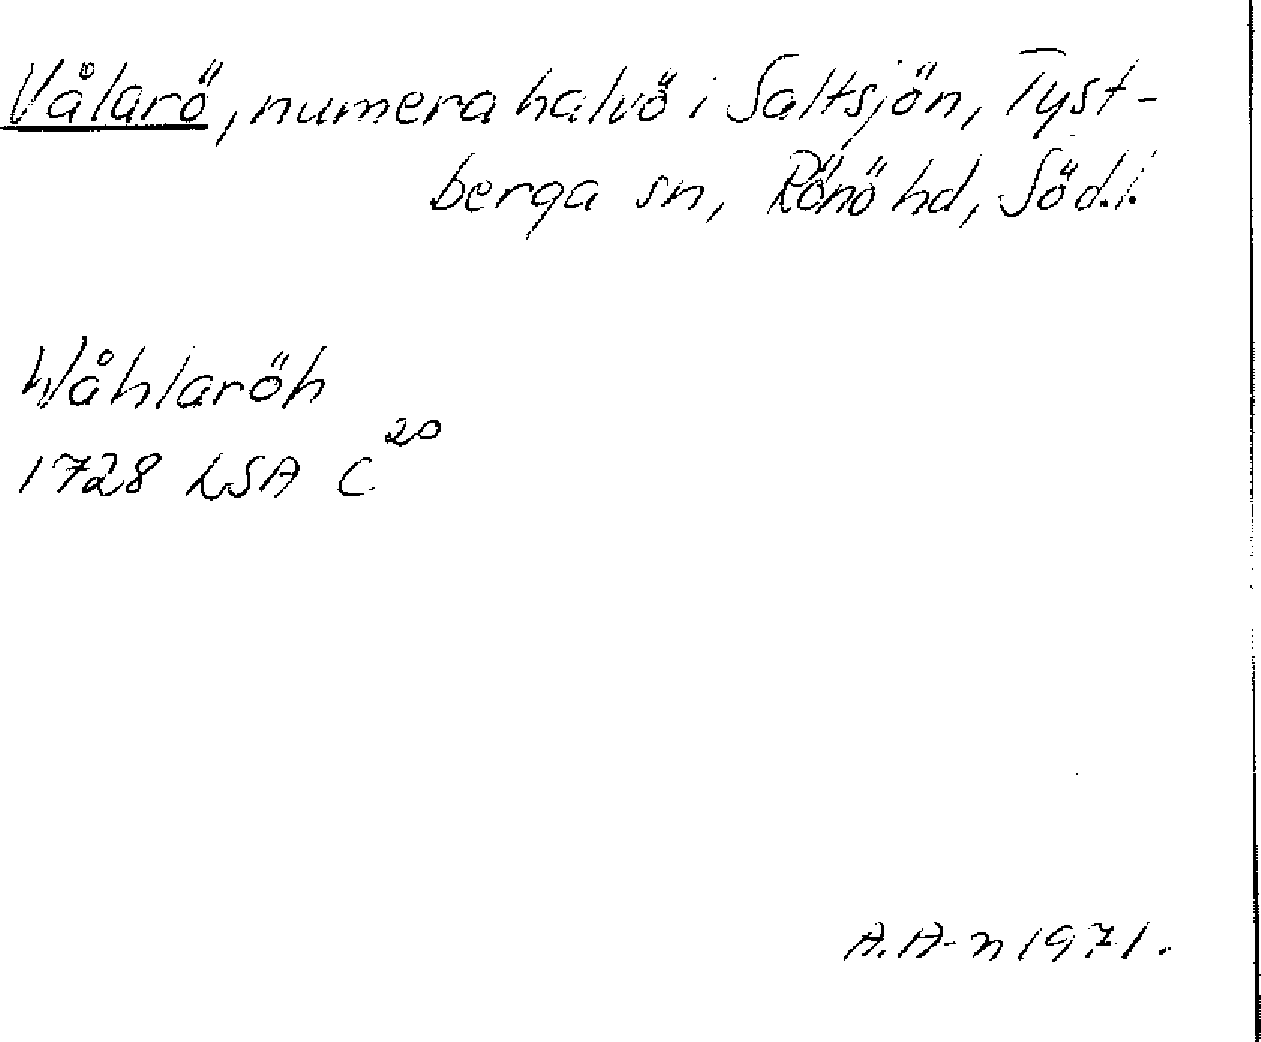 Vålarö, numera halvö i Saltsjön, Tyst-
berga sn, Rönö hd, Söd.l.
Wåhlaröh
1728 LSA C 20
A. A-n 1971.